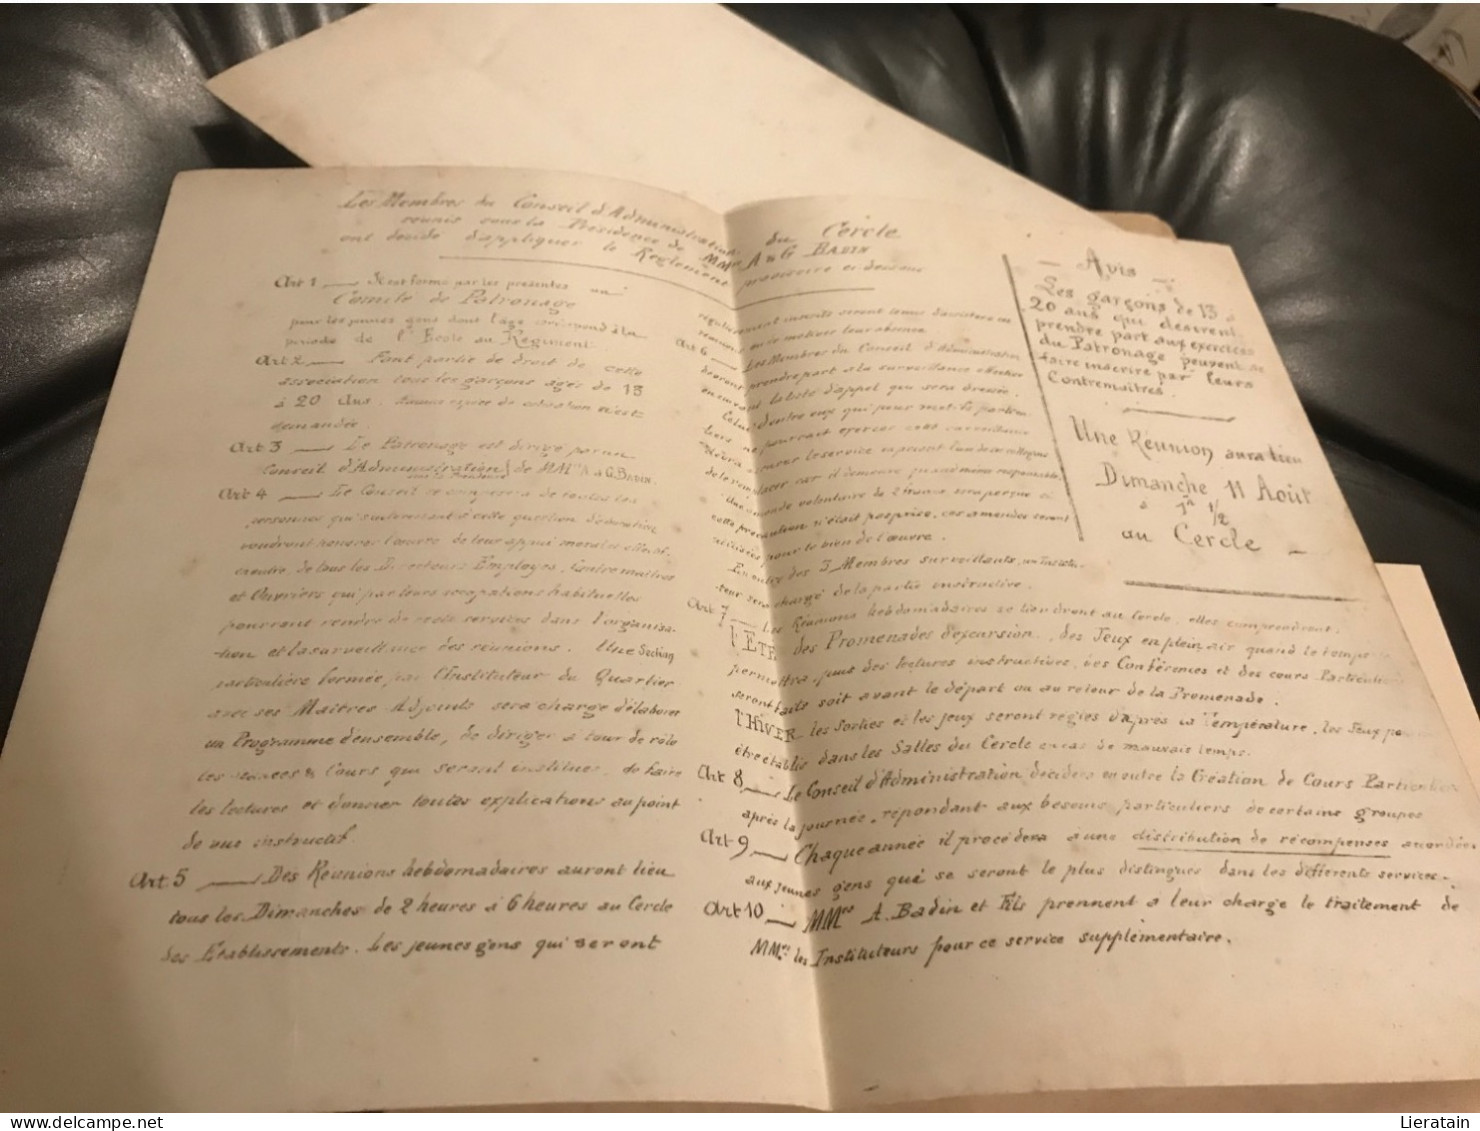 Les Membres du Conseil d'Administration du Cercle
réunis sous la Présidence de MM. A & G BADIN
ont décidé d'appliquer le Règlement provisoire ci-dessous
Art 1 — Il est formé par les présentes un
Comité de Patronage
pour les jeunes gens dont l'âge correspond à la
période de l'École au Régiment.
Art 2 — Font partie de droit de cette
association tous les garçons agés de 13
à 20 Ans. Aucune espèce de cotisation n'est
demandée.
Art 3 — Le Patronage est dirigé par un
Conseil d'Administration de MM. A & G. BADIN.
Art 4 — Le Conseil se composera de toutes les
personnes qui s'intéressant à cette question d'éducation
voudront honorer l'œuvre de leur appui moral et effectif.
de tous les Directeurs Employés, Contremaîtres
et Ouvriers qui par leurs occupations habituelles
pourront rendre de réels services dans l'organisa-
tion et la surveillance des réunions. Une Section
particulière formée par l'Instituteur du Quartier
avec ses Maîtres Adjoints sera chargée d'élaborer
un Programme d'ensemble, de diriger à tour de rôle
les séances & Cours qui seront institués, de faire
les lectures et donner toutes explications au point
de vue instructif.
Art 5 — Des Réunions hebdomadaires auront lieu
tous les Dimanches de 2 heures à 6 heures au Cercle
des Établissements. Les jeunes gens qui seront
régulièrement inscrits seront tenus d'assister aux
réunions ou de motiver leur absence.
Art 6 — Les Membres du Conseil d'Administration
devront prendre part à la surveillance effective
en suivant la liste d'appel qui sera dressée.
Celui d'entre eux qui pour motif particu-
lier ne pourrait exercer cette surveillance
devra assurer le service en priant l'un de ses collègues
de le remplacer car il demeure quand même responsable.
Une amende volontaire de 2 francs sera perçue si
cette précaution n'était pas prise, ces amendes seront
utilisées pour le bien de l'œuvre.
En outre des 3 Membres surveillants, un Institu-
teur sera chargé de la partie instructive.
Art 7 — Les Réunions hebdomadaires se tiendront au Cercle, elles comprendront:
l'ÉTÉ des Promenades d'excursion, des Jeux en plein air quand le temps le
permettra, puis des lectures instructives, des Conférences et des cours Particuliers
seront faits soit avant le départ ou au retour de la Promenade.
l'HIVER les Sorties et les jeux seront réglés d'après la Température, les Jeux
être établis dans les Salles du Cercle en cas de mauvais temps.
Art 8 — Le Conseil d'Administration décidera en outre la Création de Cours Particuliers
après la journée, répondant aux besoins particuliers de certains groupes
Art 9 — Chaque année il procédera à une distribution de récompenses accordées
aux jeunes gens qui se seront le plus distingués dans les différents services.
Art 10 — MMrs A. Badin et Fils prennent à leur charge le traitement de
MMrs les Instituteurs pour ce service supplémentaire.
— Avis —
Les garçons de 13 à
20 ans qui désirent
prendre part aux exercices
du Patronage peuvent se
faire inscrire par leurs
Contremaîtres.
Une Réunion aura lieu
Dimanche 11 Août
à 1h 1/2
au Cercle —
Lieratain